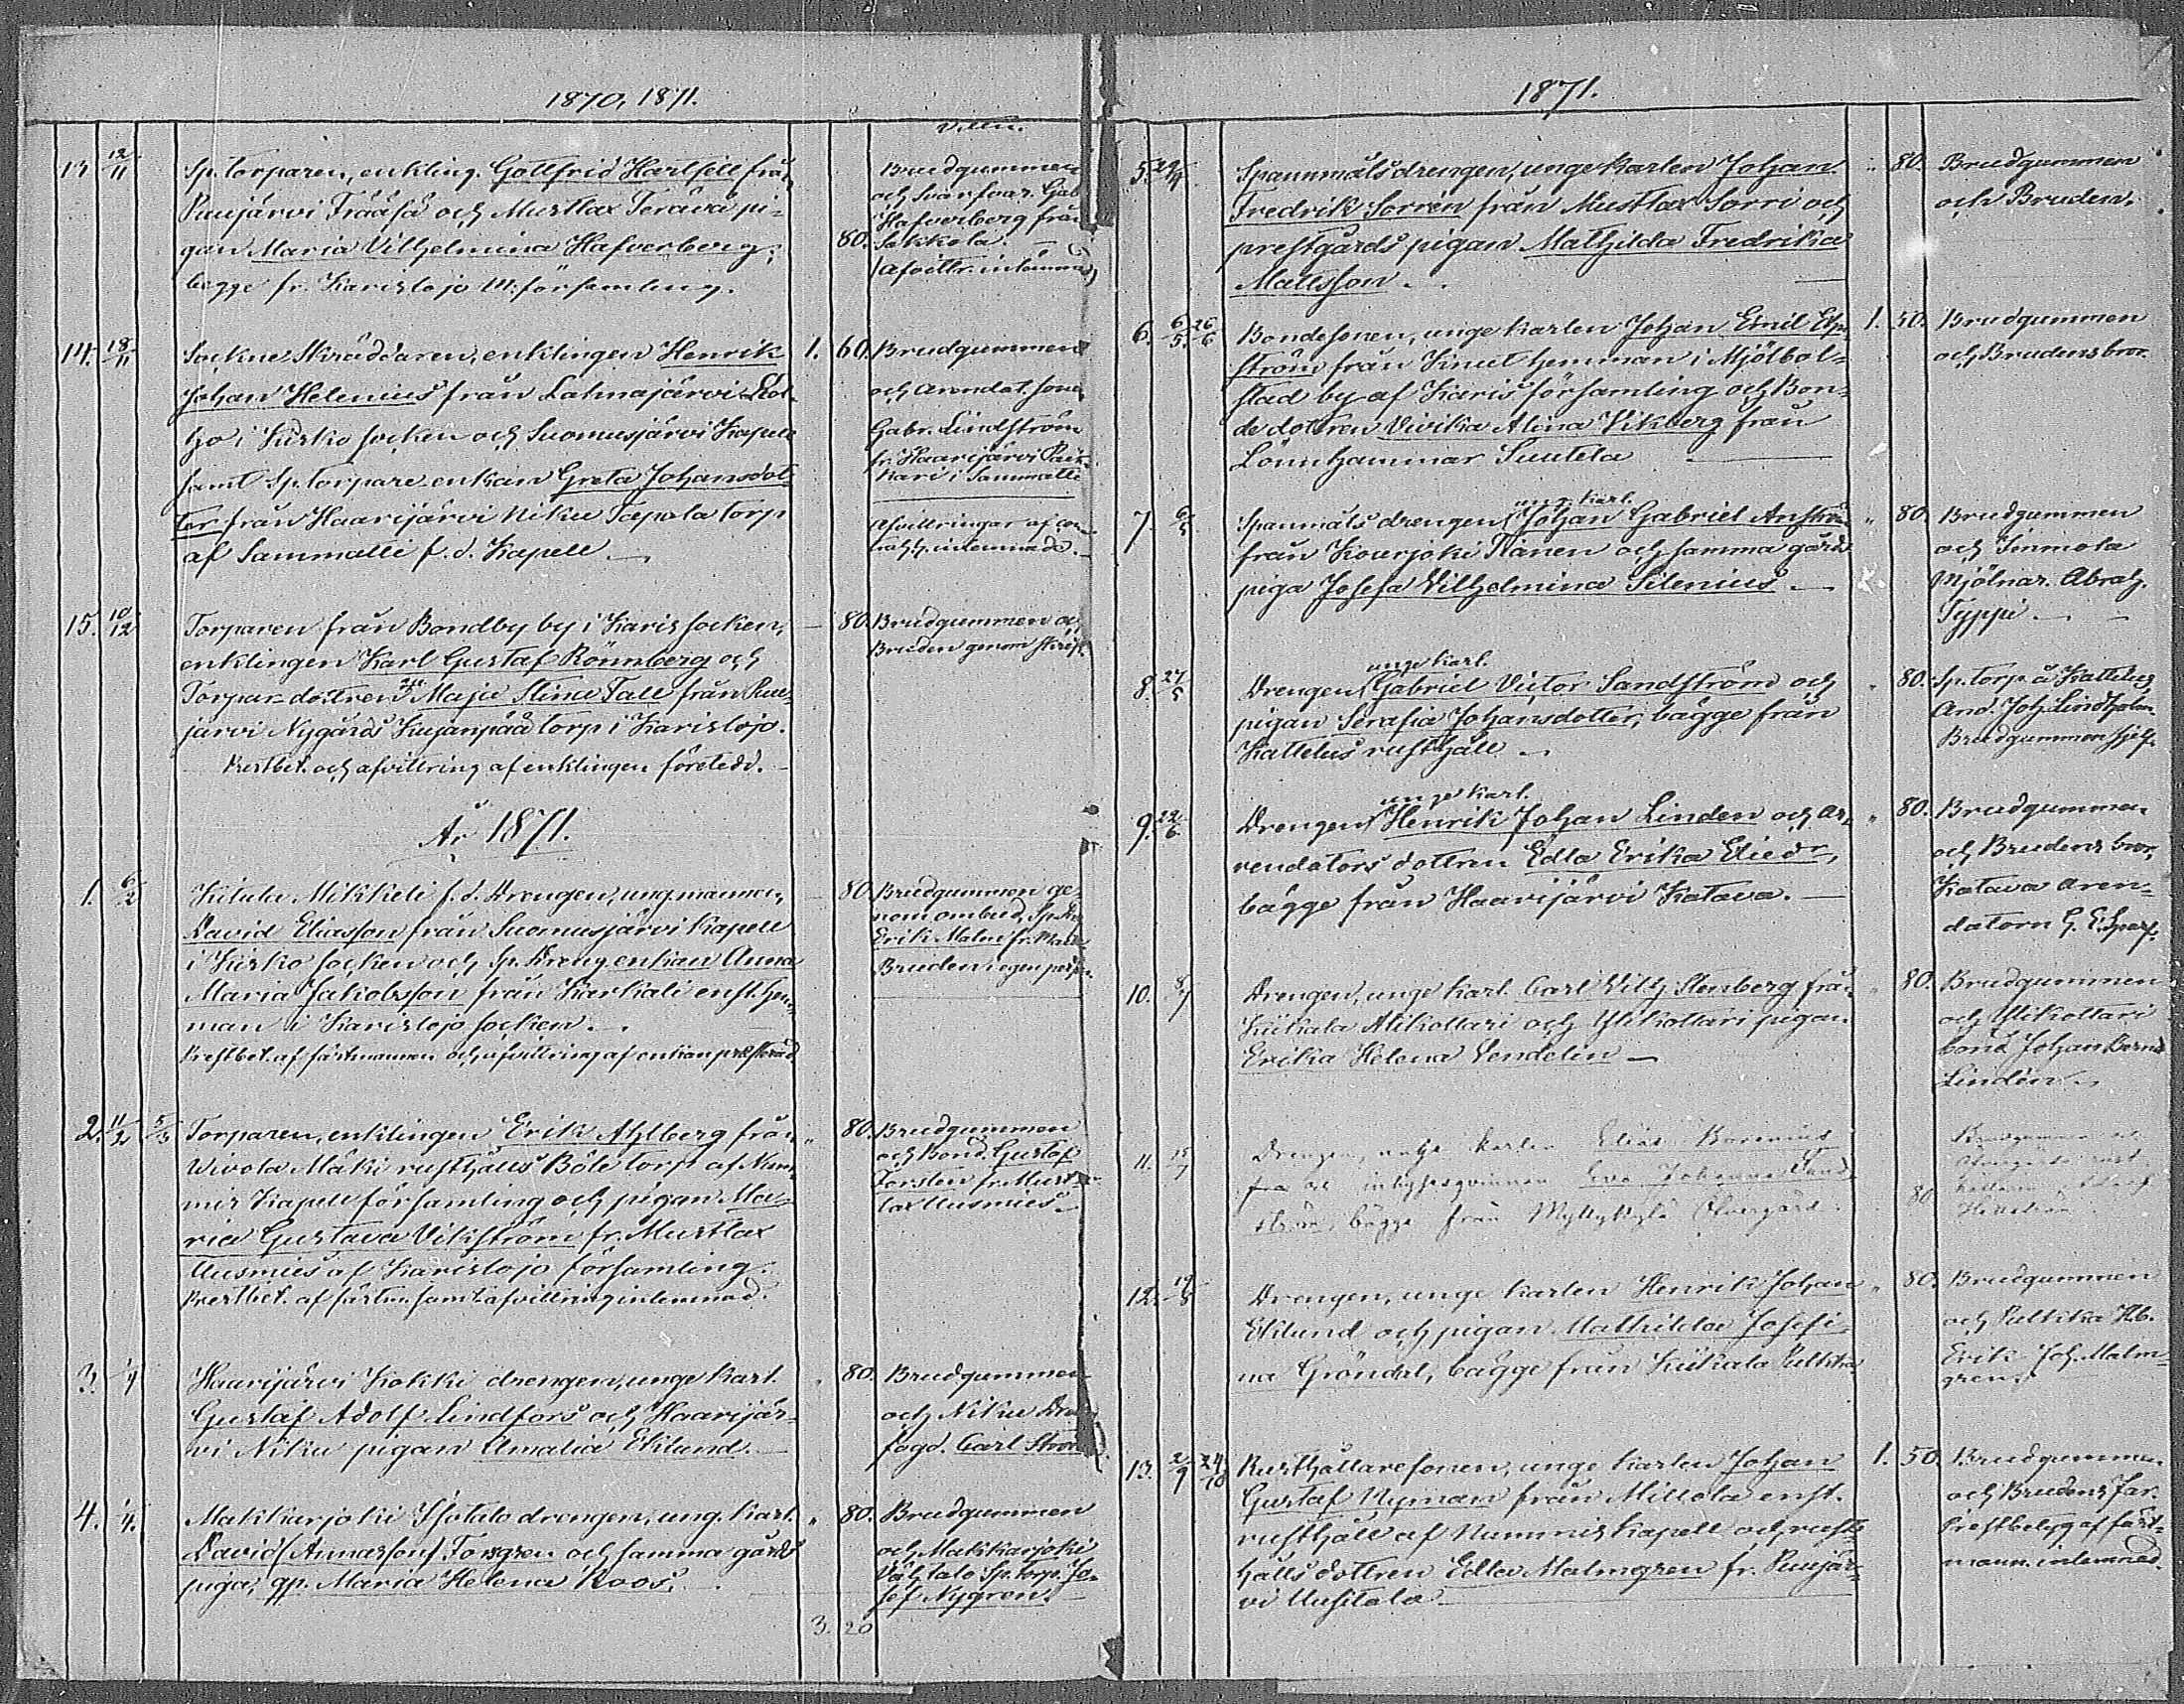 1870, 1871.
13 12/11 Sp. torparen, enkling. Gottfrid Hartfell från
Puujärvi Träåså och Mustlax Terävä pi-
gan Maria Vilhelmina Hafverberg;
begge fr. Karislojo m. församling.
80.
Brudgummen
och Svärfar. Gab
Hafverberg från
Sakkola.
14. 18/11 Sockne Skräddaren, enklingen Henrik
Johan Helenius från Lahnajärvi
i Kisko socken och Suomusjärvi Kapell
samt Sp. torpare enkan Greta Johansdot-
ter från Haarijärvi Niku Tapola torp
af Sammatti f. d. Kapell.
1. 60.
Brudgummen
och Arendat. sonen
Gabr. Lindström
fr. Haarijärvi
i Sammatti
15. 10/12 Torparen från Bondby by i Karis socken,
enklingen Karl Gustaf Rönnberg och
Torpar-dottren Maja Stina Tall från Puu-
järvi Nygårds Kujanpää torp i Karislojo.
Prestbet. och afvittring af enklingen företedd.
80.
Brudgummen och
Bruden genom skrift.
År 1871.
1. 6/2 Kitula Mikkeli f. d. Drengen, ung mannen,
David Eliasson från Suomusjärvi Kapell
i Kisko socken och Sp. Dreng enkan Anna
Maria Jakobsson från Karkali enst. hem-
man i Karislojo socken.
Prestbet. af fästmannen och afvittring af enkan
80.
Brudgummen ge-
nom ombud,
Erik Malm fr.
Bruden i egen person.
2. 11/2 5/3 Torparen, enklingen Erik Ahlberg från
Wivola Mäki rusthålls Böle torp af Num-
mis Kapell församling och pigan Ma-
ria Gustava Vikström fr. Mustlax
Uusmies af Karislojo församling.
Prestbet. af fästm. samt afvittring inlemnad.
80.
Brudgummen
och Bond. Gustaf
Forsten fr. Must-
lax Uusmies.
3. 1/4 Haarijärvi Kokki drengen, unge karl.
Gustaf Adolf Lindfors och Haarijär-
vi Niku pigan Amalia Eklund.
80.
Brudgummen
och Niku
fogd. Carl
4. 1/4. Makkarjoki Isotalo drengen, ung. karl.
David (Annasson) Forsgren och samma gårds
piga, qp. Maria Helena Roos.
80.
Brudgummen
och Makkarjoki
Vähtalo Sp. torp. Jo-
sef Nygren.
3. 20
1871.
5. 29/4 Spannmålsdrengen, unge karlen Johan
Fredrik Sorrén från Mustlax Sorri och
prestgårds pigan Mathilda Fredrika
Mattsson.
80.
Brudgummen
och Bruden.
6. 6/5. 26/6 Bondesonen, unge karlen Johan Emil
ström från Knut hemman i Mjölbol-
stad by af Karis församling och Bon-
de dottren Vivika Alina Vikberg från
Lönnhammar Suutela
1. 50.
Brudgummen
och Brudens bror.
7. 6/5 Spanmåls drengen ung karl. Johan Gabriel
från Kourjoki Pänen och samma gårds
piga Josefa Vilhelmina Silenius.
80.
Brudgummen
och
Mjölnar. Abrah.
Typpi.
8. 27/5 Drengen unge karl. Gabriel Victor Sandström och
pigan Serafia Johansdotter, bägge från
Kattelus rusthåll.
80.
Sp. torp. å Kattelus
And. Joh. Lindholm.
Brudgummen sjelf.
9. 22/6 Drengen unge karl. Henrik Johan Linden och Ar-
rendators dottren Edla Erika Eliedr,
bägge från Haarijärvi Katava.
80.
Brudgummen
och Brudens bror,
Katava aren-
datorn G. E.
10. 8/7 Drengen, unge karl. Carl Vilh. Stenberg från
Kiikala Alikottari och Ylikottari pigan
Erika Helena Vendelin
80.
Brudgummen
och Ylikottari
bond. Johan Bernd
Lindén.
11. 15/7 Drengen, unge karlen Elias
och inhyseqvinnan Eva Johanna
ström, bägge från Myllykylä Övergård.
80
12. 19/8 Drengen, unge karlen Henrik Johan
Eklund och pigan Mathilda Josefi-
na Gröndal, bägge från Kiikala
80.
Brudgummen
och
Erik Joh. Malm-
gren.
13. 2/9 24/10 Rusthållaresonen, unge karlen Johan
Gustaf Nyman från Millola enst.
rusthåll af Nummis Kapell och rust-
hålls dottren Edla Malmgren fr. Puujär-
vi Uusitalo
1. 50.
Brudgummen
och Brudens far.
Prestbetyg af fäst-
mann. inlemnad.